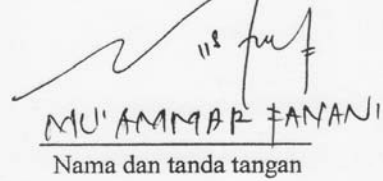 MU'AMMAR FANANI
Nama dan tanda tangan